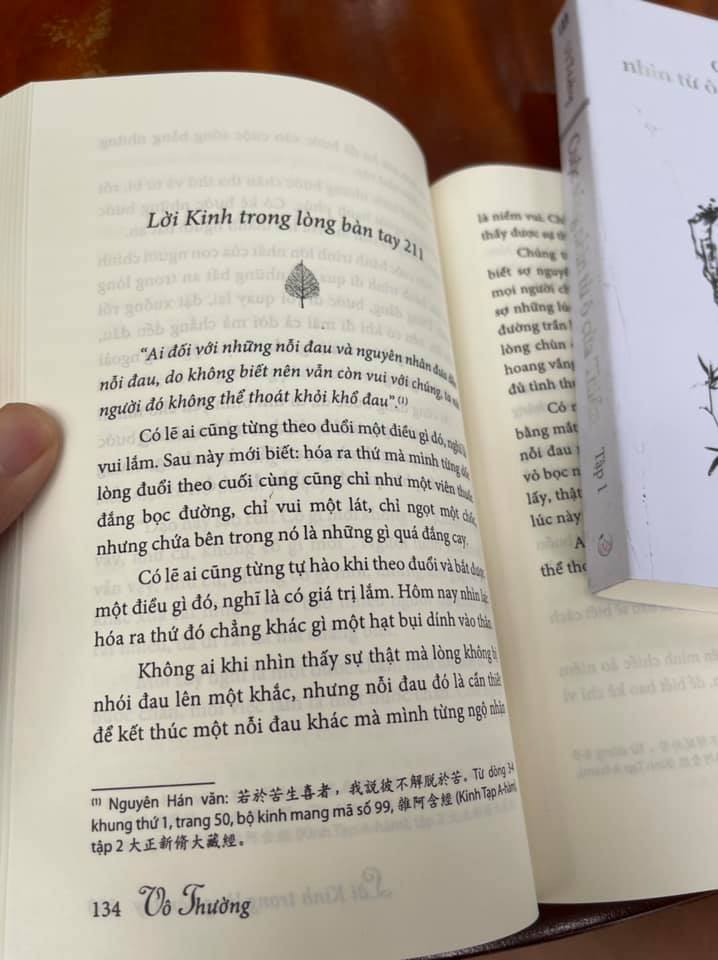 Lời Kinh trong lòng bàn tay 211
“Ai đối với những nỗi đau và nguyên nhân đưa đến
nỗi đau, do không biết nên vẫn còn vui với chúng,
người đó không thể thoát khỏi khổ đau”.(1)
Có lẽ ai cũng từng theo đuổi một điều gì đó, nghĩ là
vui lắm. Sau này mới biết: hóa ra thứ mà mình từng
lòng đuổi theo cuối cùng cũng chỉ như một viên thuốc
đắng bọc đường, chỉ vui một lát, chỉ ngọt một chốc,
nhưng chứa bên trong nó là những gì quá đắng cay.
Có lẽ ai cũng từng tự hào khi theo đuổi và bắt được
một điều gì đó, nghĩ là có giá trị lắm. Hôm nay nhìn lại,
hóa ra thứ đó chẳng khác gì một hạt bụi dính vào thân.
Không ai khi nhìn thấy sự thật mà lòng không bị
nhói đau lên một khắc, nhưng nỗi đau đó là cần thiết
để kết thúc một nỗi đau khác mà mình từng ngộ nhận
(1) Nguyên Hán văn: 若於苦生喜者，我說彼不解脫於苦。Từ dòng 34
khung thứ 1, trang 50, bộ kinh mang mã số 99, 雜阿含經 (Kinh Tạp A-hàm)
tập 2 大正新脩大藏經。
134 Vô Thường
là niềm vui.
thấy được sự
Chúng
biết sợ nguyê
mọi người
sợ những lú
đường trần
lòng chùn
hoang vắng
đủ tình th
Có
bằng mắt
nỗi đau
vỏ bọc
lấy, thật
lúc này
A
thể tho
nhìn từ ô
Tập 1